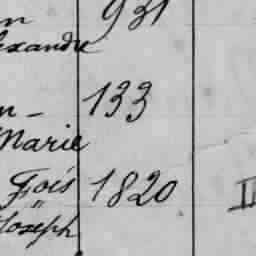 n 931
exandre
n- 133
Marie
Fois 1820 II
"
Joseph